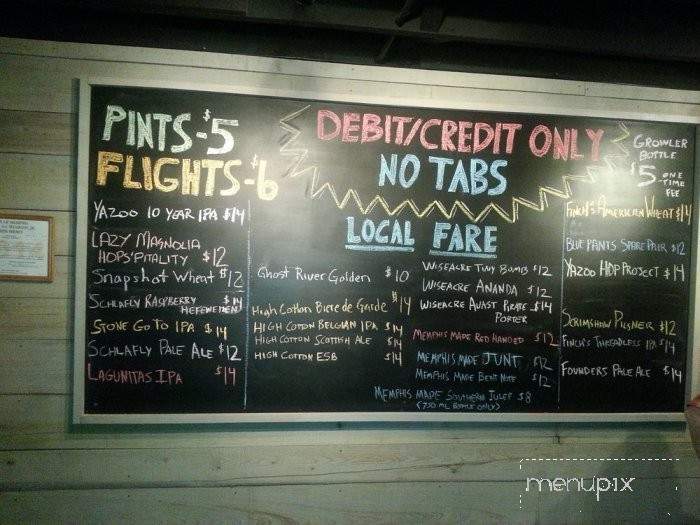 PINTS-$5
FLIGHTS-$6
YAZOO 10 YEAR IPA $14
LAZY MAGNOLIA
HOPS'PITALITY $12
Snapshot Wheat $12
SCHLAFLY RASPBERRY $14
HEFEWEIZEN
STONE GO TO IPA $14
SCHLAFLY PALE ALE $12
LAGUNITAS IPA $14
DEBIT/CREDIT ONLY
NO TABS
LOCAL FARE
GHOST RIVER Golden $10
High Cotton Biere de Garde $14
HIGH COTTON BELGIAN IPA $14
HIGH COTTON SCOTTISH ALE $14
HIGH COTTON ESB $14
WISEACRE TINY BOMB $12
WISEACRE ANANDA $12
WISEACRE AVAST PIRATE $14
PORTER
MEMPHIS MADE RED HANDED $12
MEMPHIS MADE JUNT $12
MEMPHIS MADE BENT NOTE $12
MEMPHIS MADE SOUTHERN JULEP $8
(750 ML BOTTLE ONLY)
GROWLER
BOTTLE
$5 ONE
TIME
FEE
FINCH'S AMERICAN WHEAT $14
BLUE PANTS $12
YAZOO HOP PROJECT $14
SCRIMSHAW PILSNER $12
FINCH'S THREADLESS IPA $14
FOUNDERS PALE ALE $14
menupix